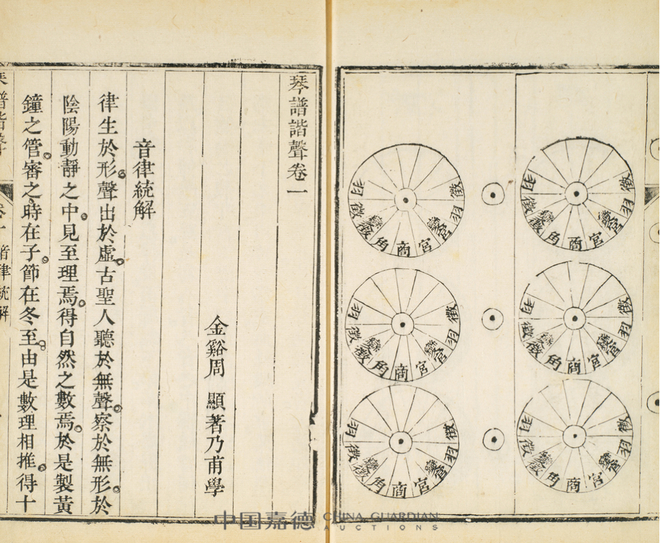 徵羽變宮宮商角變徵徵羽
徵羽變宮宮商角變徵徵羽
徵羽變宮宮商角變徵徵羽
徵羽變宮宮商角變徵徵羽
徵羽變宮宮商角變徵徵羽
徵羽變宮宮商角變徵徵羽
琴譜諧聲卷一
金谿周 顯著乃甫學
音律統解
律生於形。聲出於虛。古聖人聽於無聲。察於無形。於
陰陽動靜之中。見至理焉。得自然之數焉。於是製黃
鐘之管。審之時在子。節在冬至。由是數理相推。得十
琴譜諧聲 卷一 音律統解
中国嘉德 CHINA GUARDIAN
AUCTIONS